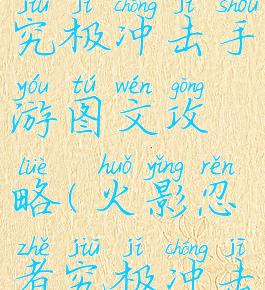 jiū jí chōng jī shǒu
究极冲击手
yóu tú wén gōng
游图文攻
lüè huǒ yǐng rěn
略(火影忍
zhě jiū jí chōng jī
者究极冲击